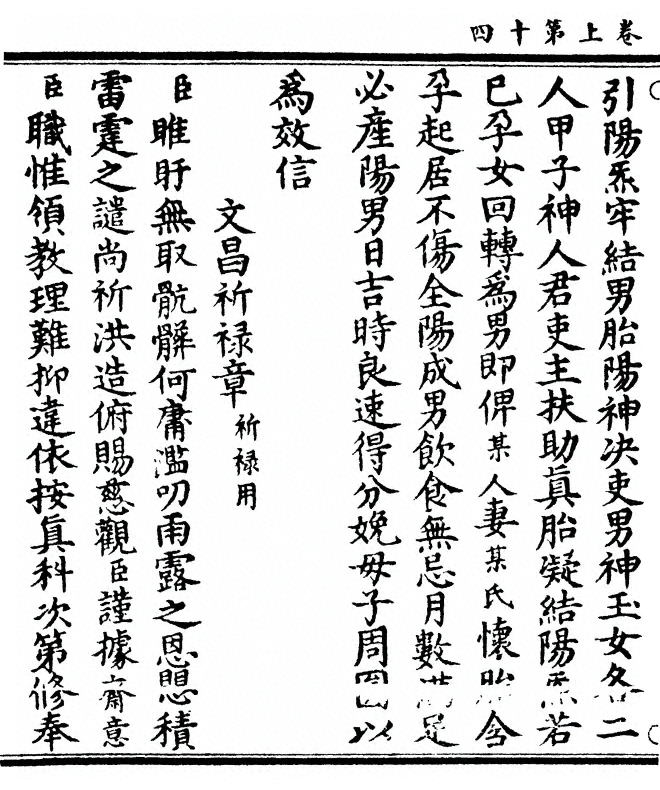 卷上第十四
引陽炁牢結男胎陽神决吏男神玉女各二
人甲子神人君吏主扶助真胎凝結陽炁若
巳孕女回轉為男即俾某人妻某氏懷胎含
孕起居不傷全陽成男飲食無忌月數滿足
必産陽男日吉時良速得分娩母子周圓以
為效信
文昌祈禄章祈禄用
臣睢盱無取骯髒何庸濫叨雨露之恩愳積
雷霆之譴尚祈洪造俯賜慈觀臣謹據齋意
臣職惟領教理難抑違依按真科次第修奉